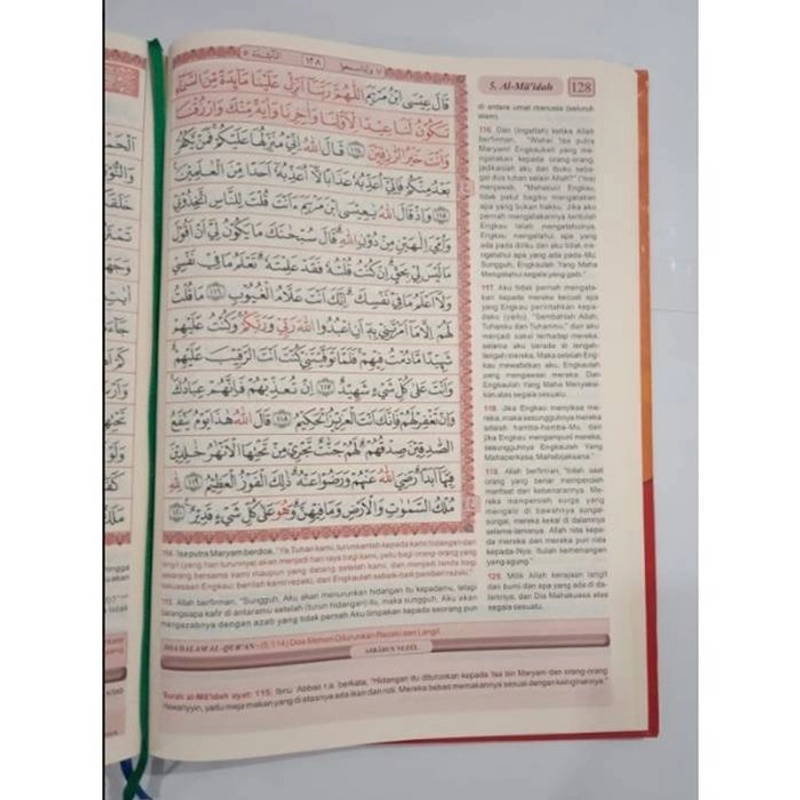 ٧ واذاسمعوا
١٢٨
المآئدة ٥
5. Al-Mā'idah 128
قَالَ عِيْسَى ابْنُ مَرْيَمَ اللّٰهُمَّ رَبَّنَآ اَنْزِلْ عَلَيْنَا مَاۤىِٕدَةً مِّنَ السَّمَاۤءِ
تَكُوْنُ لَنَا عِيْدًا لِّاَوَّلِنَا وَاٰخِرِنَا وَاٰيَةً مِّنْكَ وَارْزُقْنَا
وَاَنْتَ خَيْرُ الرّٰزِقِيْنَ ۝١١٤ قَالَ اللّٰهُ اِنِّيْ مُنَزِّلُهَا عَلَيْكُمْ فَمَنْ يَّكْفُرْ
بَعْدُ مِنْكُمْ فَاِنِّيْٓ اُعَذِّبُهٗ عَذَابًا لَّآ اُعَذِّبُهٗٓ اَحَدًا مِّنَ الْعٰلَمِيْنَ
۝١١٥ وَاِذْ قَالَ اللّٰهُ يٰعِيْسَى ابْنَ مَرْيَمَ ءَاَنْتَ قُلْتَ لِلنَّاسِ اتَّخِذُوْنِيْ
وَاُمِّيَ اِلٰهَيْنِ مِنْ دُوْنِ اللّٰهِ قَالَ سُبْحٰنَكَ مَا يَكُوْنُ لِيْٓ اَنْ اَقُوْلَ
مَا لَيْسَ لِيْ بِحَقٍّ اِنْ كُنْتُ قُلْتُهٗ فَقَدْ عَلِمْتَهٗ تَعْلَمُ مَا فِيْ نَفْسِيْ
وَلَآ اَعْلَمُ مَا فِيْ نَفْسِكَ اِنَّكَ اَنْتَ عَلَّامُ الْغُيُوْبِ ۝١١٦ مَا قُلْتُ
لَهُمْ اِلَّا مَآ اَمَرْتَنِيْ بِهٖٓ اَنِ اعْبُدُوا اللّٰهَ رَبِّيْ وَرَبَّكُمْ وَكُنْتُ عَلَيْهِمْ
شَهِيْدًا مَّا دُمْتُ فِيْهِمْ فَلَمَّا تَوَفَّيْتَنِيْ كُنْتَ اَنْتَ الرَّقِيْبَ عَلَيْهِمْ
وَاَنْتَ عَلٰى كُلِّ شَيْءٍ شَهِيْدٌ ۝١١٧ اِنْ تُعَذِّبْهُمْ فَاِنَّهُمْ عِبَادُكَ
وَاِنْ تَغْفِرْ لَهُمْ فَاِنَّكَ اَنْتَ الْعَزِيْزُ الْحَكِيْمُ ۝١١٨ قَالَ اللّٰهُ هٰذَا يَوْمُ يَنْفَعُ
الصّٰدِقِيْنَ صِدْقُهُمْ لَهُمْ جَنّٰتٌ تَجْرِيْ مِنْ تَحْتِهَا الْاَنْهٰرُ خٰلِدِيْنَ
فِيْهَآ اَبَدًا رَضِيَ اللّٰهُ عَنْهُمْ وَرَضُوْا عَنْهُ ذٰلِكَ الْفَوْزُ الْعَظِيْمُ ۝١١٩ لِلّٰهِ
مُلْكُ السَّمٰوٰتِ وَالْاَرْضِ وَمَا فِيْهِنَّ وَهُوَ عَلٰى كُلِّ شَيْءٍ قَدِيْرٌ ۝١٢٠
114. 'Isa putra Maryam berdoa, "Ya Tuhan kami, turunkanlah kepada kami hidangan dari
langit (yang hari turunnya) akan menjadi hari raya bagi kami, yaitu bagi orang-orang yang
sekarang bersama kami maupun yang datang setelah kami, dan menjadi tanda bagi
kekuasaan Engkau; berilah kami rezeki, dan Engkaulah sebaik-baik pemberi rezeki."
115. Allah berfirman, "Sungguh, Aku akan menurunkan hidangan itu kepadamu, tetapi
barangsiapa kafir di antaramu setelah (turun hidangan) itu, maka sungguh, Aku akan
mengazabnya dengan azab yang tidak pernah Aku timpakan kepada seorang pun
di antara umat manusia (seluruh
alam).
116. Dan (ingatlah) ketika Allah
berfirman, "Wahai 'Isa putra
Maryam! Engkaukah yang me-
ngatakan kepada orang-orang,
jadikanlah aku dan ibuku seba-
gai dua tuhan selain Allah?" ('Isa)
menjawab, "Mahasuci Engkau,
tidak patut bagiku mengatakan
apa yang bukan hakku. Jika aku
pernah mengatakannya tentulah
Engkau telah mengetahuinya.
Engkau mengetahui apa yang
ada pada diriku dan aku tidak me-
ngetahui apa yang ada pada-Mu.
Sungguh, Engkaulah Yang Maha
Mengetahui segala yang gaib."
117. Aku tidak pernah mengata-
kan kepada mereka kecuali apa
yang Engkau perintahkan kepa-
daku (yaitu), "Sembahlah Allah,
Tuhanku dan Tuhanmu," dan aku
menjadi saksi terhadap mereka,
selama aku berada di tengah-
tengah mereka. Maka setelah Eng-
kau mewafatkan aku, Engkaulah
yang mengawasi mereka. Dan
Engkaulah Yang Maha Menyaksi-
kan atas segala sesuatu.
118. Jika Engkau menyiksa me-
reka, maka sesungguhnya mereka
adalah hamba-hamba-Mu, dan
jika Engkau mengampuni mereka,
sesungguhnya Engkaulah Yang
Mahaperkasa, Mahabijaksana."
119. Allah berfirman, "Inilah saat
orang yang benar memperoleh
manfaat dari kebenarannya. Me-
reka memperoleh surga yang
mengalir di bawahnya sungai-
sungai, mereka kekal di dalamnya
selama-lamanya. Allah rida kepa-
da mereka dan mereka pun rida
kepada-Nya. Itulah kemenangan
yang agung."
120. Milik Allah kerajaan langit
dan bumi dan apa yang ada di da-
lamnya; dan Dia Mahakuasa atas
segala sesuatu.
DOA DALAM AL-QUR'AN - (5:114) Doa Mohon Diturunkan Rezeki dari Langit
ASBĀBUN NUZŪL
Surah al-Mā'idah ayat: 115: Ibnu 'Abbas r.a. berkata, "Hidangan itu diturunkan kepada 'Isa bin Maryam dan orang-orang
Hawariyyin, yaitu meja makan yang di atasnya ada ikan dan roti. Mereka bebas memakannya sesuai dengan keinginannya."